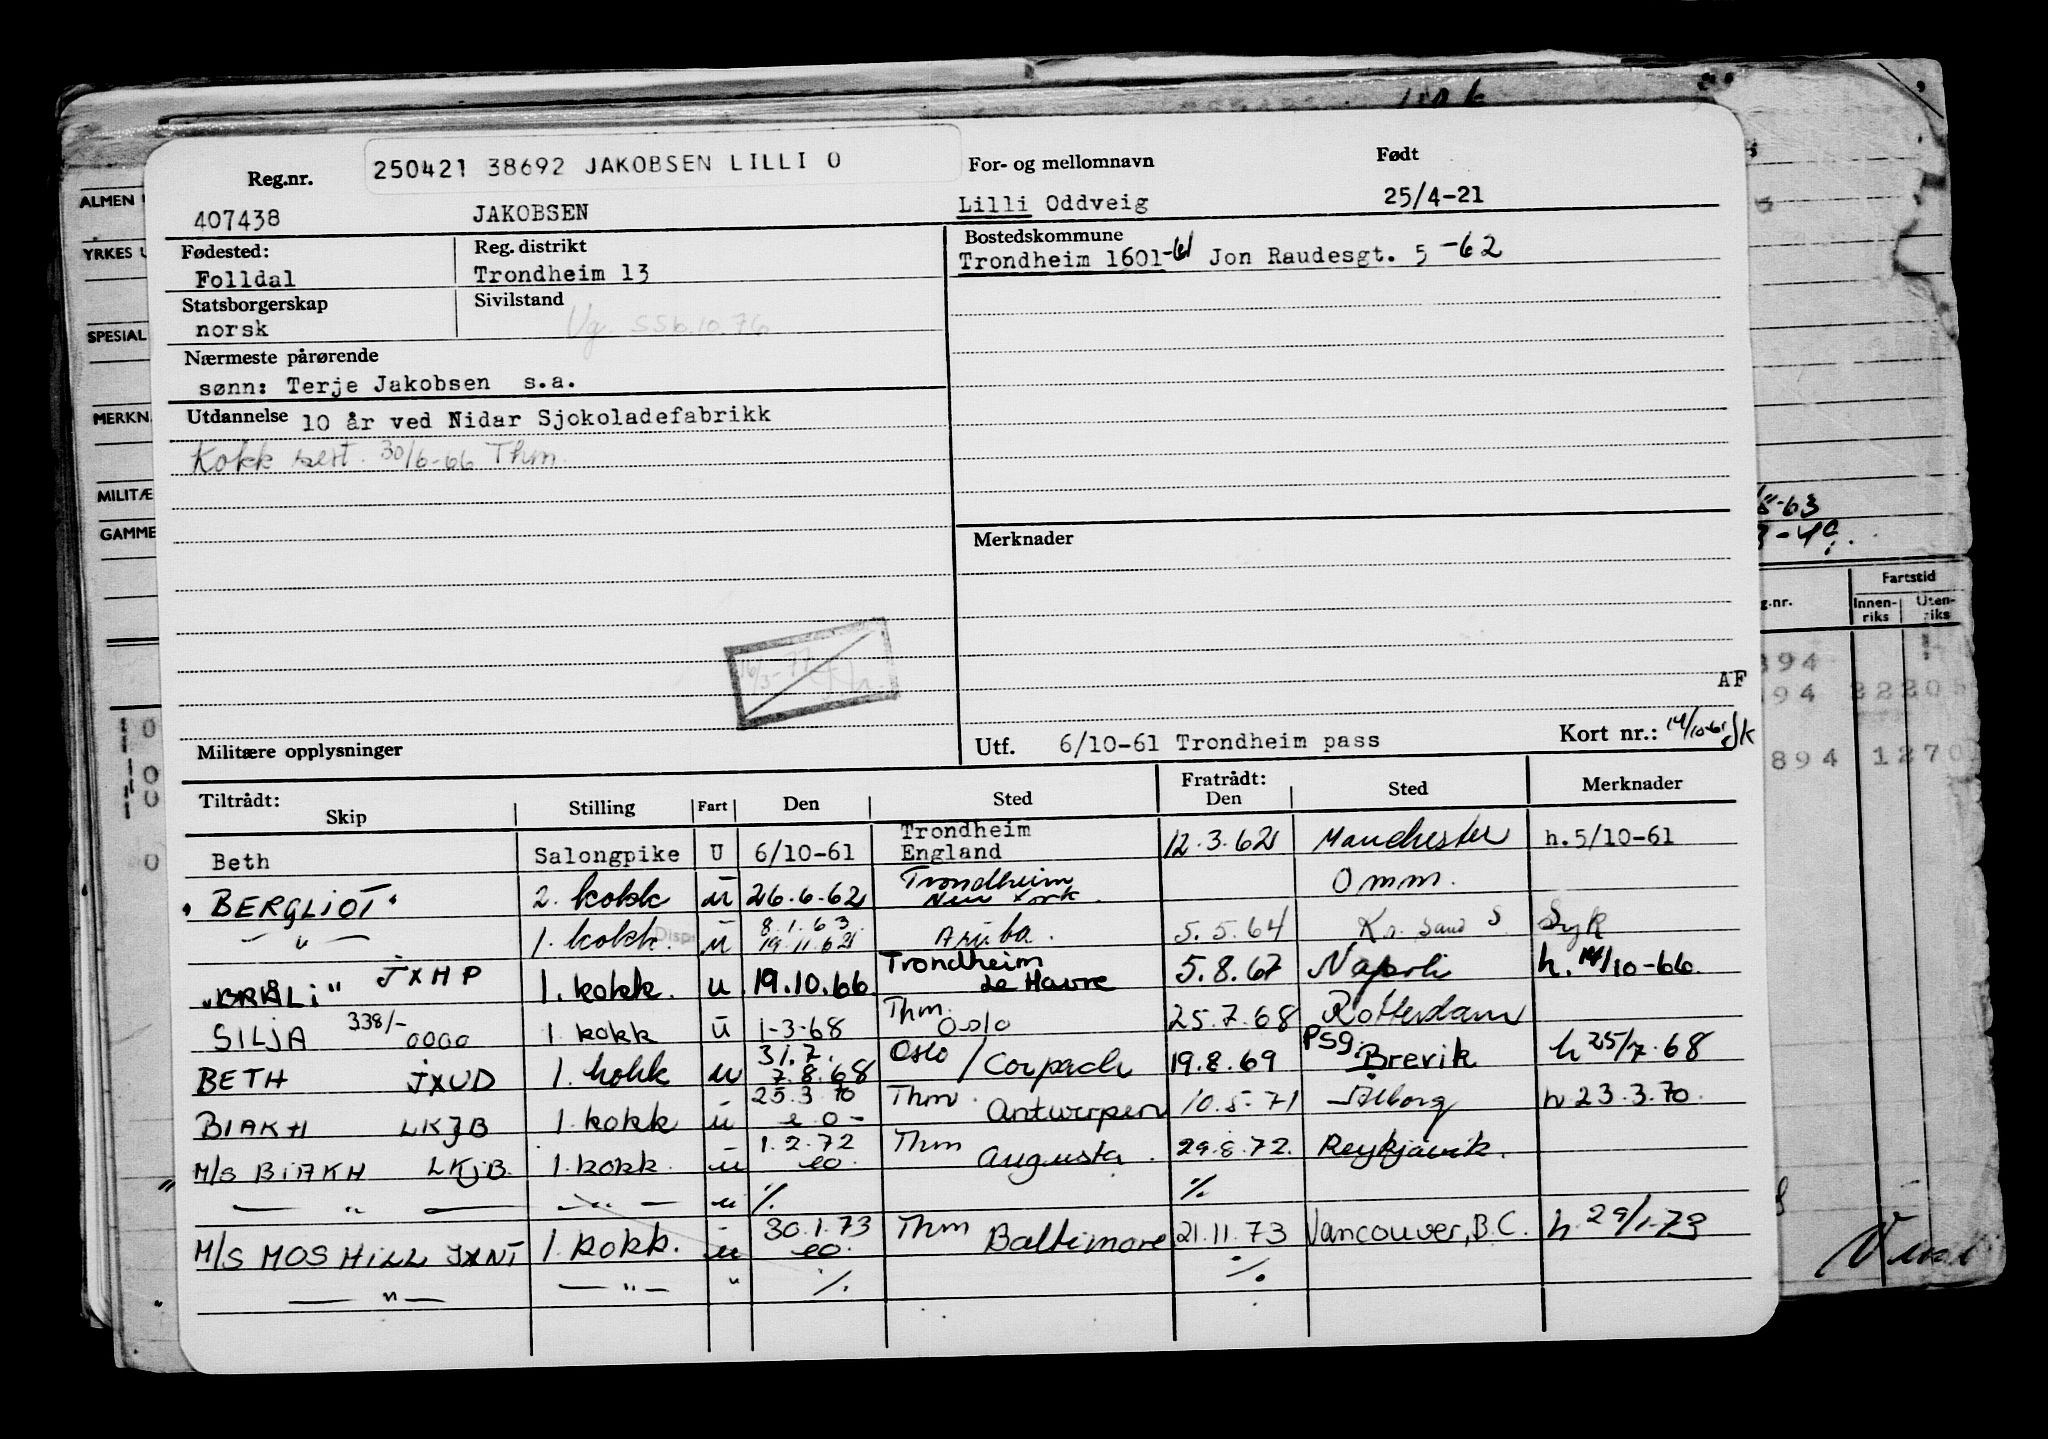 250421 38692 JAKOBSEN LILLI O
Reg.nr. For- og mellomnavn Født
407438 JAKOBSEN Lilli Oddveig 25/4-21
Fødested: Reg. distrikt Bostedskommune
Folldal Trondheim 13 Trondheim 1601-61 Jon Raudesgt. 5 -62
Statsborgerskap Sivilstand
norsk
Nærmeste pårørende
sønn: Terje Jakobsen s.a.
Utdannelse 10 år ved Nidar Sjokoladefabrikk
Kokk sert. 30/6-66 Thm.
Merknader
AF
Militære opplysninger Utf. 6/10-61 Trondheim pass Kort nr.: 14/10-61
Tiltrådt: Skip Stilling Fart Den Sted Fratrådt: Den Sted Merknader
Beth Salongpike U 6/10-61 Trondheim England 12.3.62 Manchester h.5/10-61
"BERGLIOT" 2. kokk u 26.6.62 Trondheim New York. Omm.
— " — 1. kokk. Disp. u 8.1.63 19.11.62 Aruba. 5.5.64 Kr. sand S. Syk
"BRÅLI" JXHP 1. kokk. u 19.10.66 Trondheim Le Havre 5.8.67 Napoli h. 14/10-66.
SILJA 338/- 0000 1. kokk u 1-3-68 Thm. Oslo 25.7.68 Rotterdam
BETH JXUD 1. kokk u 31.7. 7.8.68 Oslo / Corpach 19.8.69 PSG. Brevik h 25/7.68
BIAKH LKJB 1. kokk u 25.3.70 e o - Thm. Antwerpen 10.5.71 Ålborg h 23.3.70.
M/S BIAKH LKJB. 1. kokk. u 1.2.72 eo. Thm Augusta. 29.8.72. Reykjavik.
— " — — " — u % %
M/S MOSHILL JXNT 1. kokk. u 30.1.73 eo. Thm Baltimore 21.11.73 Vancouver, B.C. h. 29/1-73
— " — — " — " % %
ALMEN
YRKES
SPESIAL
MERKN
MILITÆ
GAMME
Fartstid
g.nr. Innenriks Utenriks
894 1270